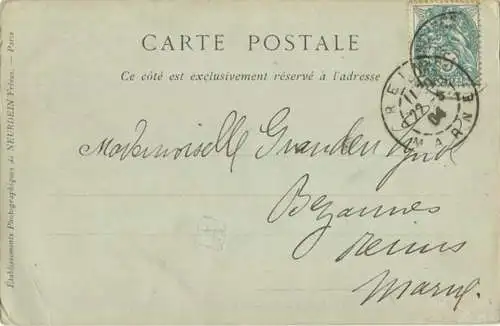 CARTE POSTALE
Ce côté est exclusivement réservé à l'adresse
REIMS
MARNE
11
22
04
Mademoiselle
Bezannes
Reims
Marne.
Établissements Photographiques de NEURDEIN Frères. — Paris